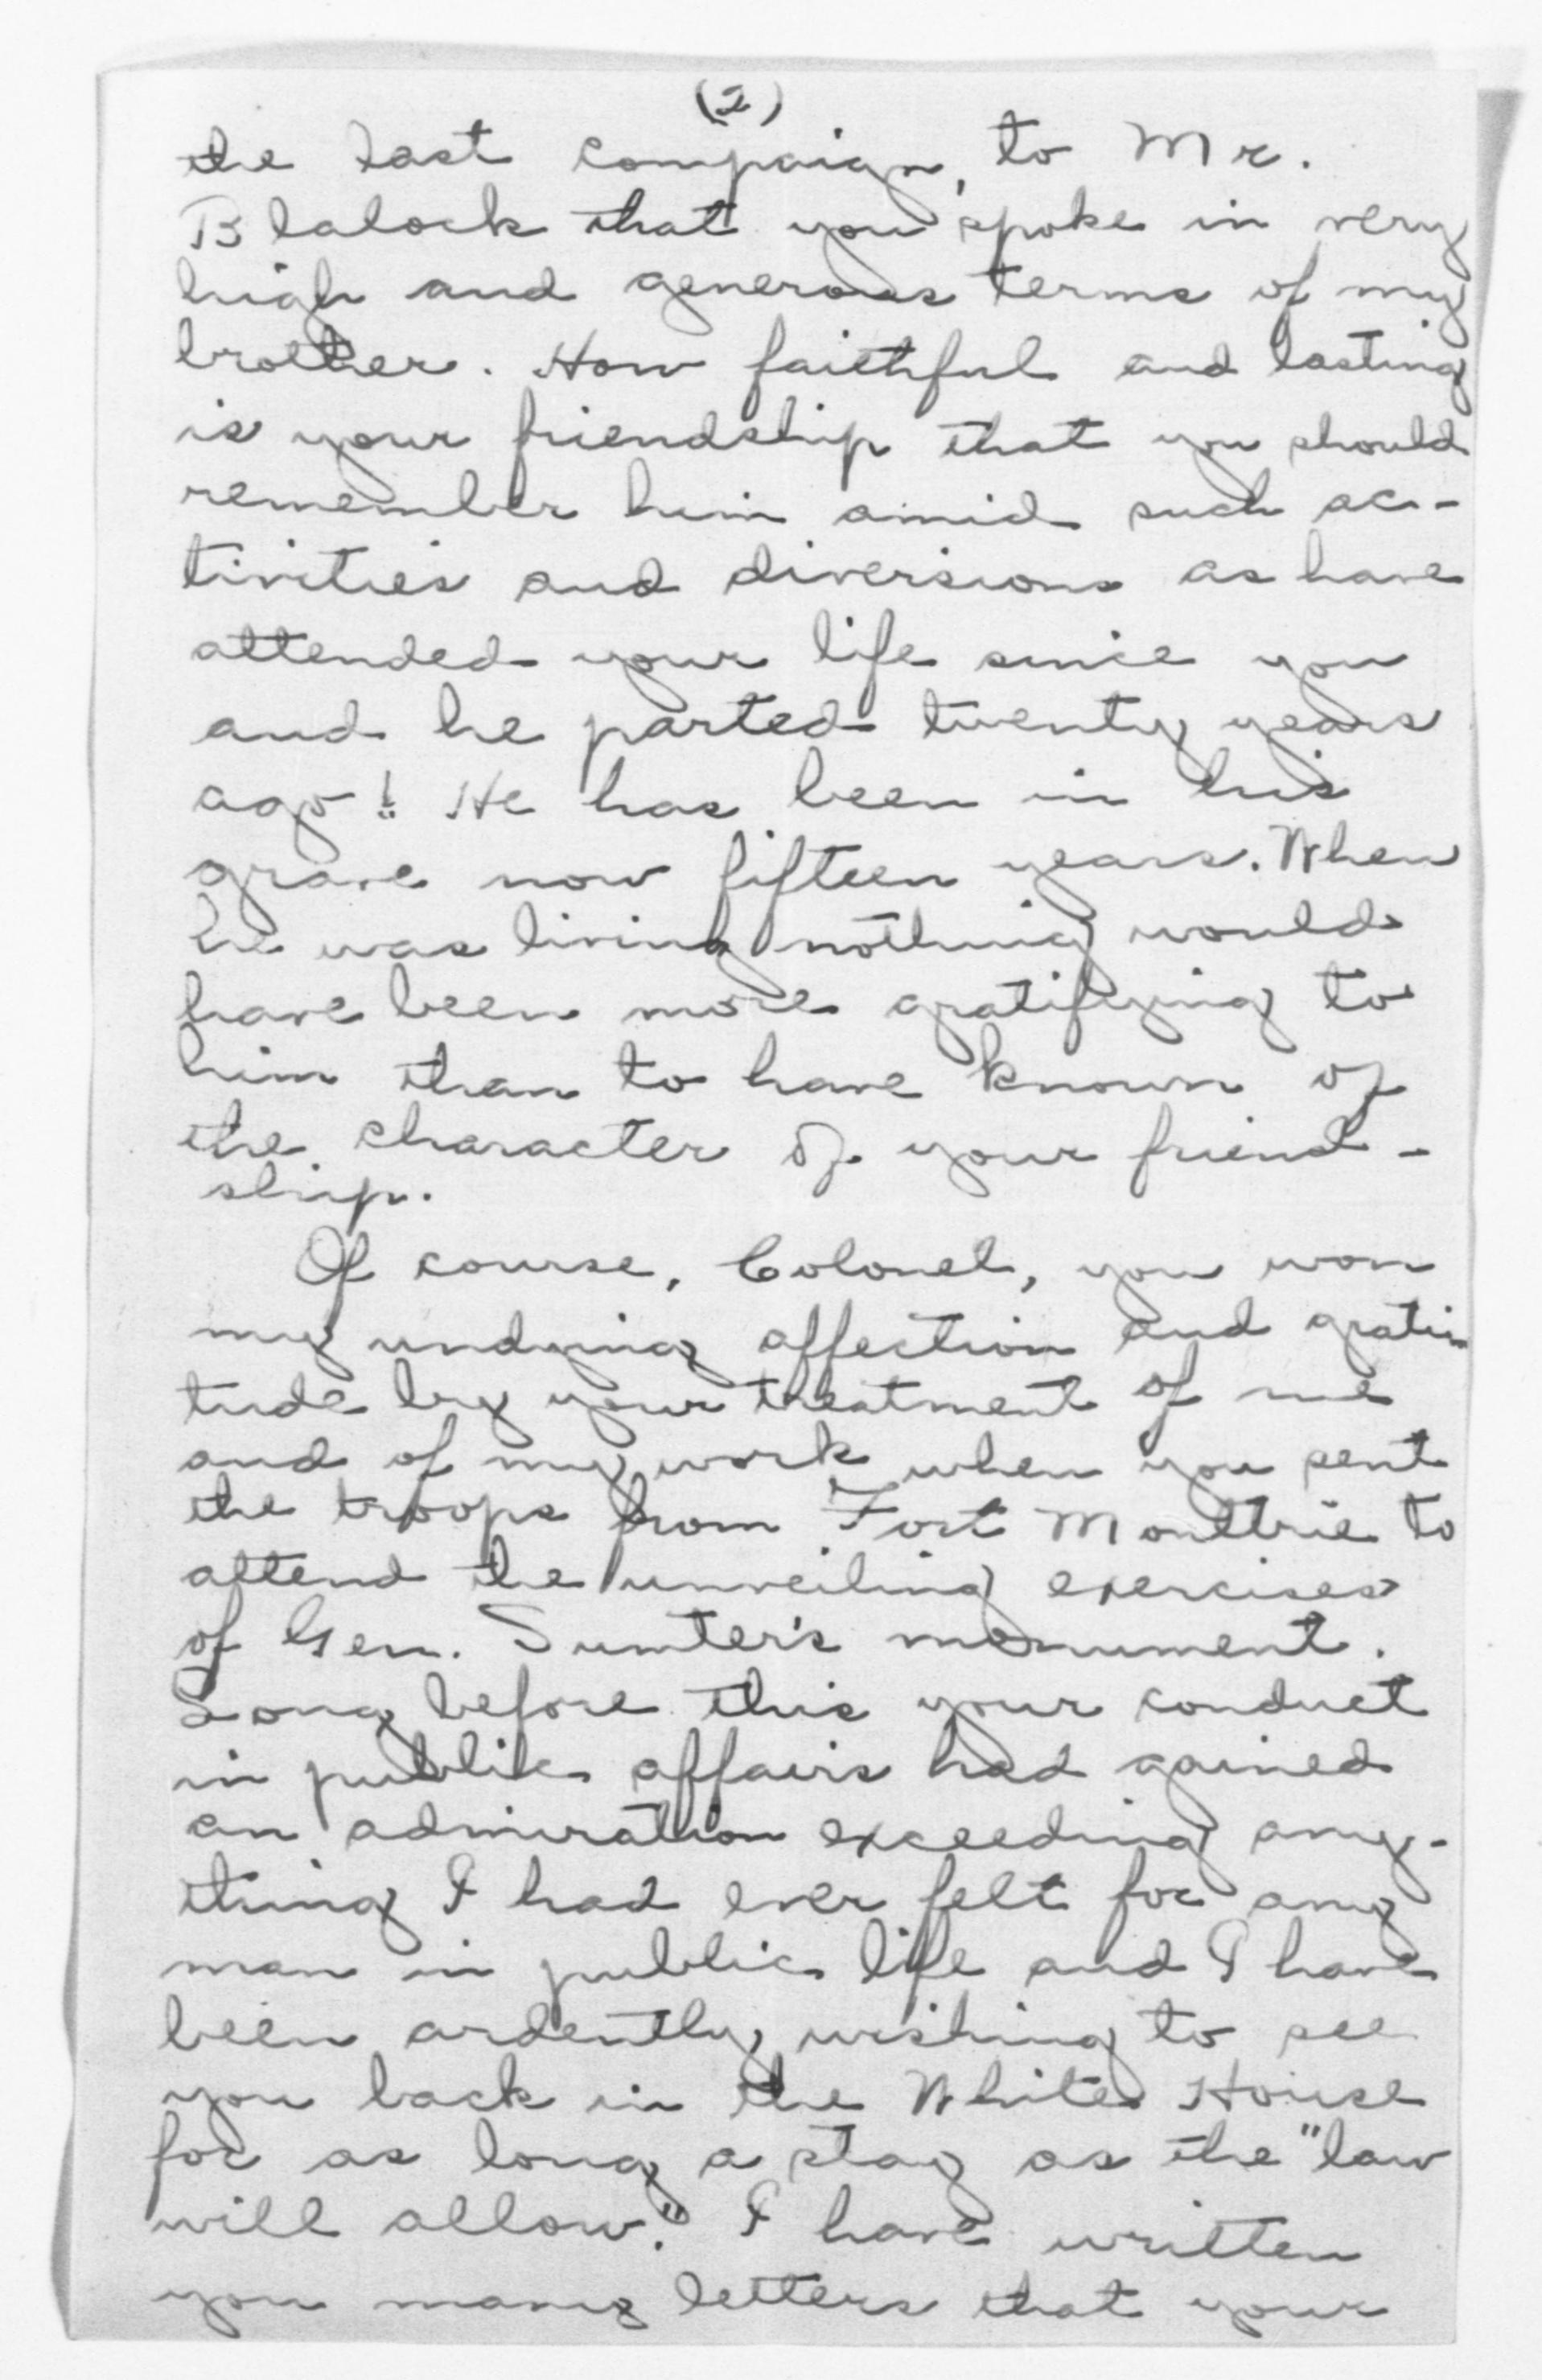 (2)
the last campaign, to Mr.
Blalock that you spoke in very
high and generous terms of my
brother. How faithful and lasting
is your friendship that you should
remember him amid such ac-
tivities and diversions as have
attended your life since you
and he parted twenty years
ago! He has been in his
grave now fifteen years. When
he was living nothing would
have been more gratifying to
him than to have known of
the character of your friend-
ship.
Of course, Colonel, you won
my undying affection and grati-
tude by your treatment of me
and of my work when you sent
the troops from Fort Moultrie to
attend the unveiling exercises
of Gen. Sumter's monument.
Long before this your conduct
in public affairs had gained
an admiration exceeding any-
thing I had ever felt for any
man in public life and I have
been ardently wishing to see
you back in the White House
for as long a stay as the "law
will allow." I have written
you many letters that your